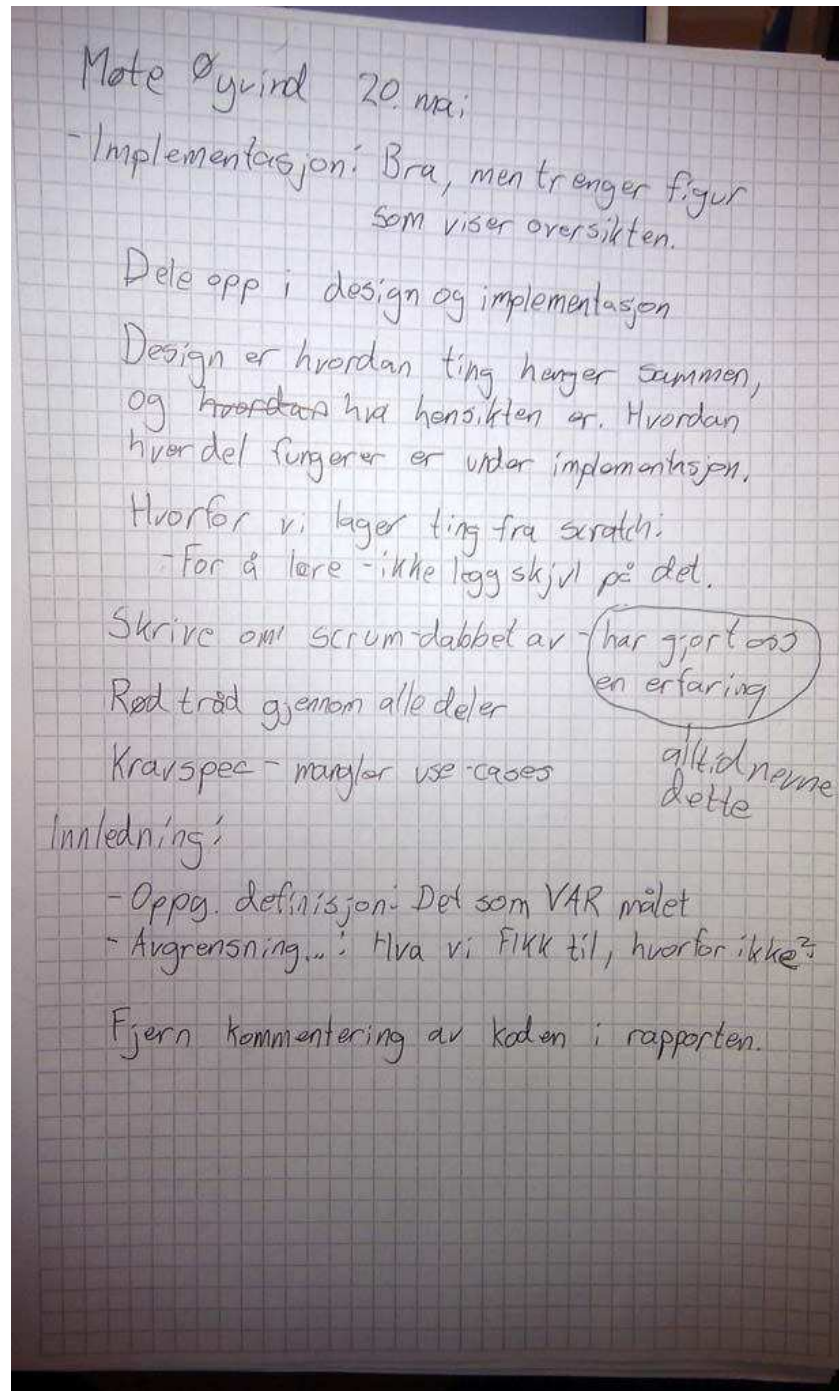 Møte Øyvind 20. mai
- Implementasjon: Bra, men trenger figur
som viser oversikten.
Dele opp i design og implementasjon
Design er hvordan ting henger sammen,
og hvordan hva hensikten er. Hvordan
hver del fungerer er under implementasjon.
Hvorfor vi lager ting fra scratch:
- For å lære - ikke legg skjul på det.
Skrive om scrum - dabbet av - har gjort oss
en erfaring
Rød tråd gjennom alle deler
Kravspec - mangler use-cases
alltid nevne
dette
Innledning:
- Oppg. definisjon: Det som VAR målet
- Avgrensning...: Hva vi FIKK til, hvorfor ikke?
Fjern kommentering av koden i rapporten.